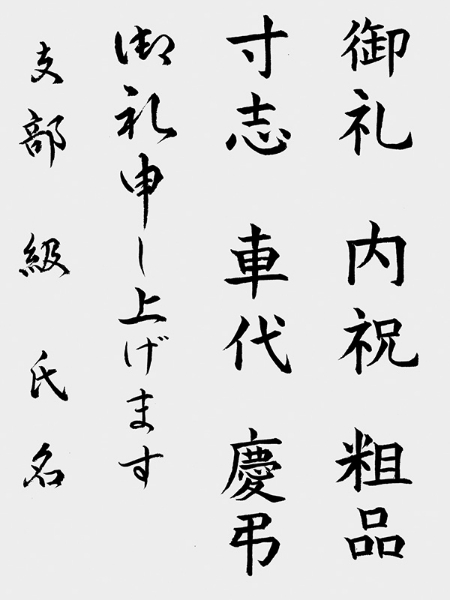 御礼 内祝 粗品
寸志 車代 慶弔
御礼申し上げます
支部 級 氏名